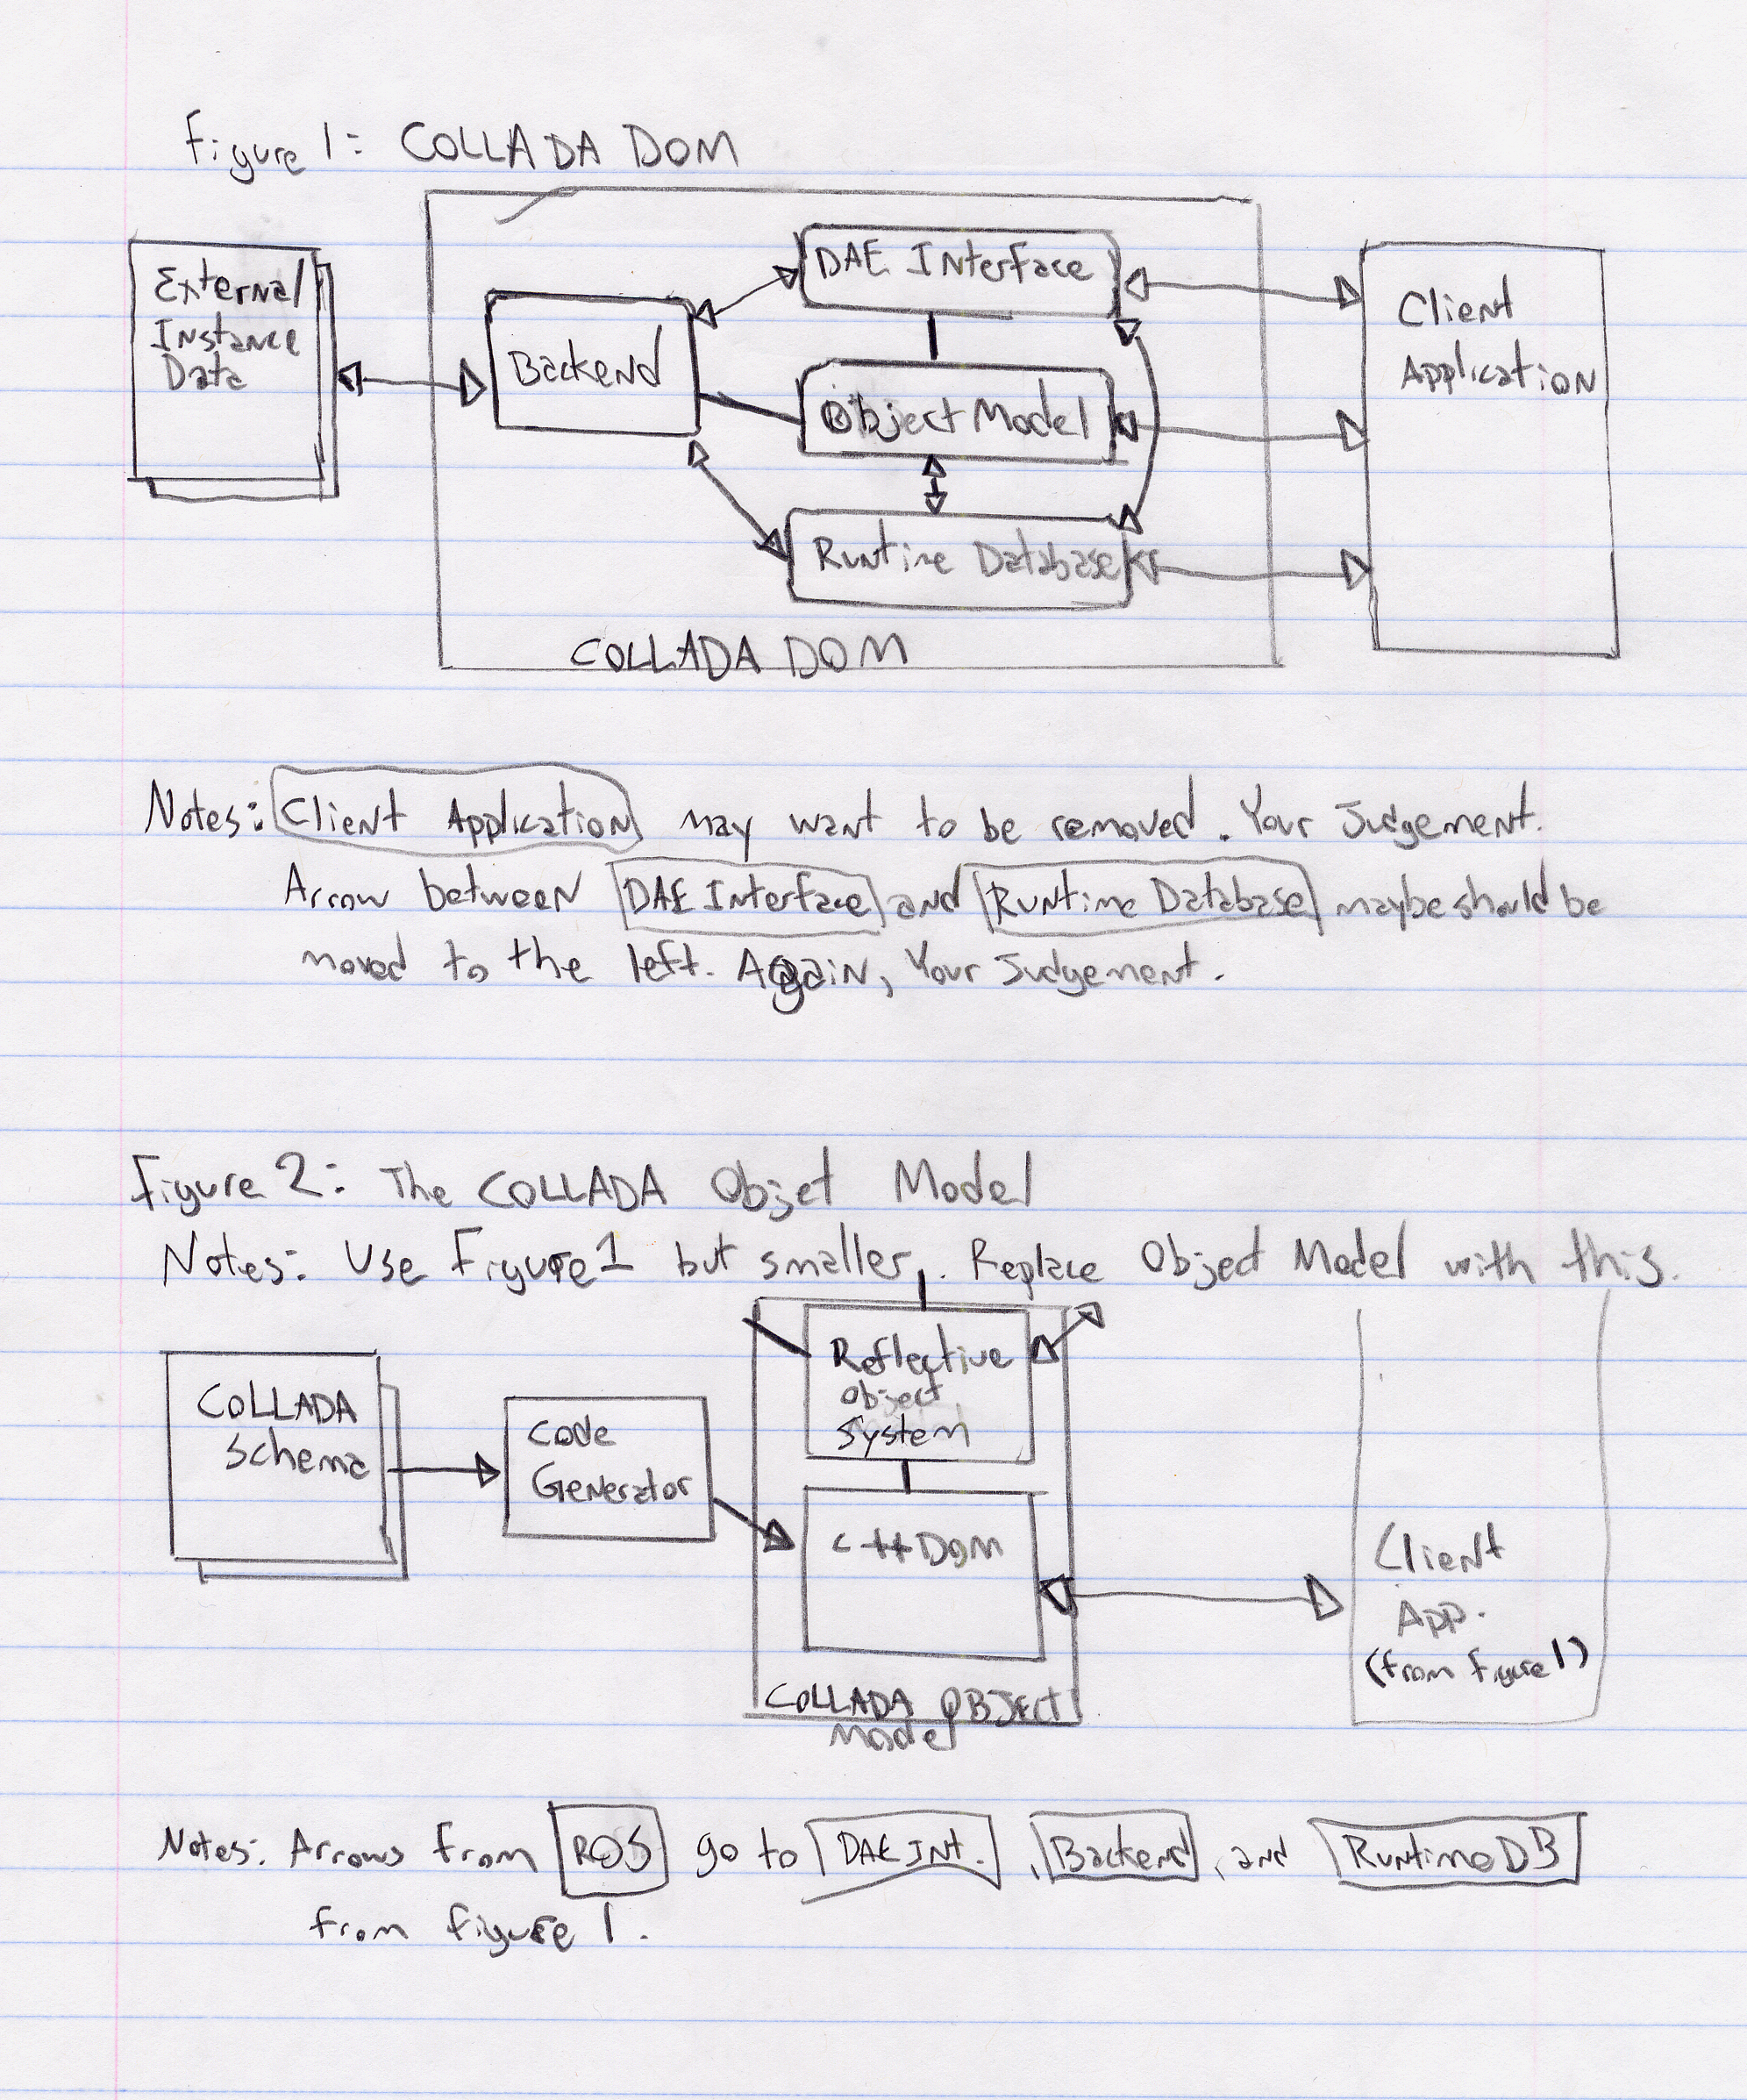 Figure 1: COLLADA DOM
External
Instance
Data
Backend
DAE Interface
Object Model
Runtime Database
Client
Application
COLLADA DOM
Notes: Client Application may want to be removed. Your Judgement.
Arrow between DAE Interface and Runtime Database maybe should be
moved to the left. Again, Your Judgement.
Figure 2: The COLLADA Objet Model
Notes: Use Figure 1 but smaller. Replace Object Model with this.
COLLADA
Schema
Code
Generator
Reflective
Object
System
C++ DOM
COLLADA OBJECT
Model
Client
App.
(from figure 1)
Notes: Arrows from ROS go to DAE INT., Backend, and Runtime DB
from figure 1.